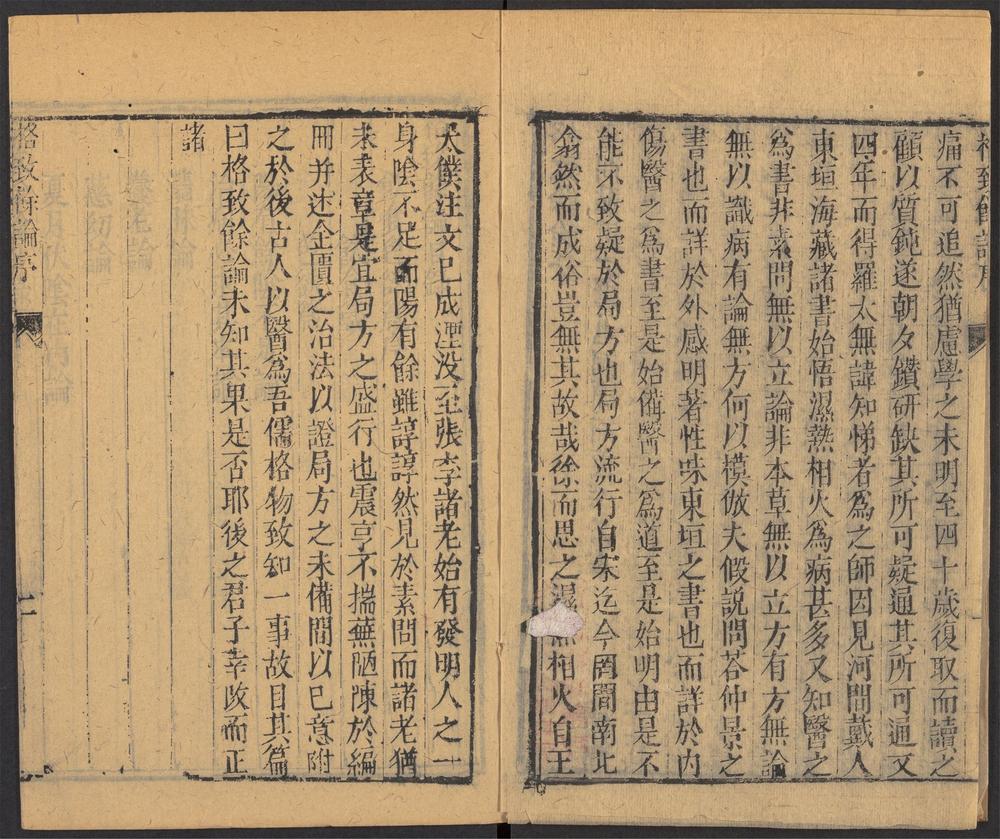 格致餘論序
痛不可追然猶慮學之未明至四十歲復取而讀之
顧以質鈍遂朝夕鑽研缺其所可疑通其所可通又
四年而得羅太無諱知悌者為之師因見河間戴人
東垣海藏諸書始悟濕熱相火為病甚多又知醫之
為書非素問無以立論非本草無以立方有方無論
無以識病有論無方何以模倣夫假說問荅仲景之
書也而詳於外感明著性味東垣之書也而詳於內
傷醫之為書至是始備醫之為道至是始明由是不
能不致疑於局方也局方流行自宋迄今罔間南北
翕然而成俗豈無其故哉徐而思之濕熱相火自王
太僕注文已成湮没至張李諸老始有發明人之一
身陰不足而陽有餘雖諄諄然見於素問而諸老猶
未表章是宜局方之盛行也震亨不揣蕪陋陳於編
冊并述金匱之治法以證局方之未備間以已意附
之於後古人以醫為吾儒格物致知一事故目其篇
曰格致餘論未知其果是否耶後之君子幸改而正
諸
格致餘論序
二